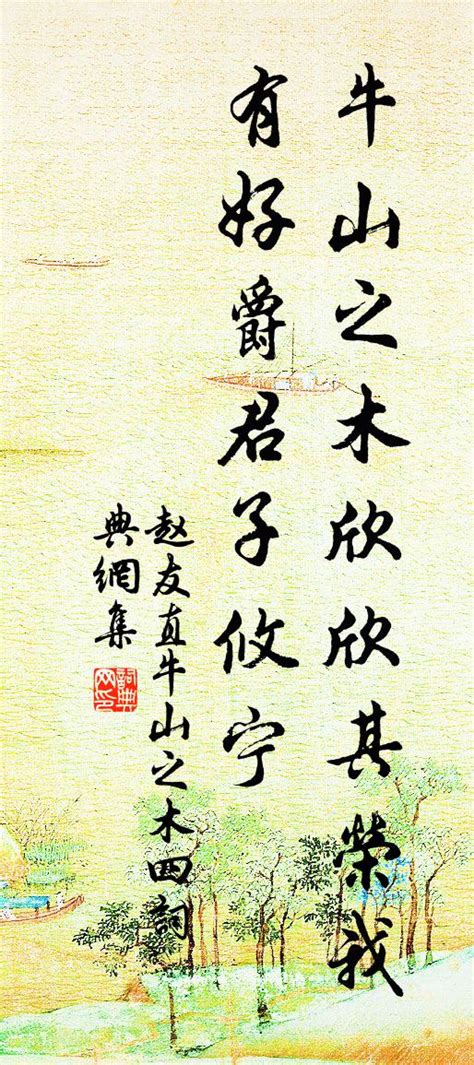 牛山之木欣欣其榮我
有好爵君子攸宁
赵友直牛山之木四詞
典網集
詞典
网印